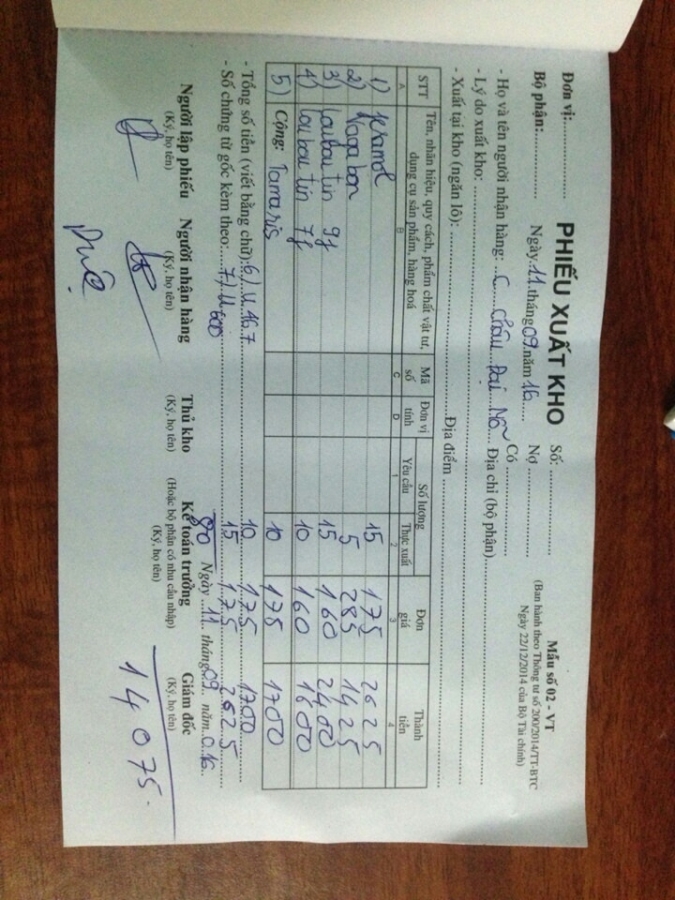 Đơn vị:..................
Bộ phận:..................
PHIẾU XUẤT KHO
Ngày 11 tháng 09 năm 16
Số: ..................
Nợ ..................
Có ..................
Mẫu số 02 - VT
(Ban hành theo Thông tư số 200/2014/TT-BTC
Ngày 22/12/2014 của Bộ Tài chính)
- Họ và tên người nhận hàng: C Châu Đại Nỗ Địa chỉ (bộ phận)..................
- Lý do xuất kho: ..................
- Xuất tại kho (ngăn lô): .................. Địa điểm ..................
STT Tên, nhãn hiệu, quy cách, phẩm chất vật tư, dụng cụ sản phẩm, hàng hoá Mã số Đơn vị tính Số lượng Đơn giá Thành tiền
Yêu cầu Thực xuất
A B C D 1 2 3 4
1) 15 175 2625
2) Vagabon 5 285 1425
3) Louboutin 9f 15 160 2400
4) Louboutin 7f 10 160 1600
5) Cộng: Tamaris 10 175 1700
- Tổng số tiền (viết bằng chữ): 6) 10 175 1700
- Số chứng từ gốc kèm theo: 7) 15 175 2625
80 Ngày 11 tháng 09 năm 016
Người lập phiếu
(Ký, họ tên)
Người nhận hàng
(Ký, họ tên)
Thủ kho
(Ký, họ tên)
Kế toán trưởng
(Hoặc bộ phận có nhu cầu nhập)
(Ký, họ tên)
Giám đốc
(Ký, họ tên)
14075.